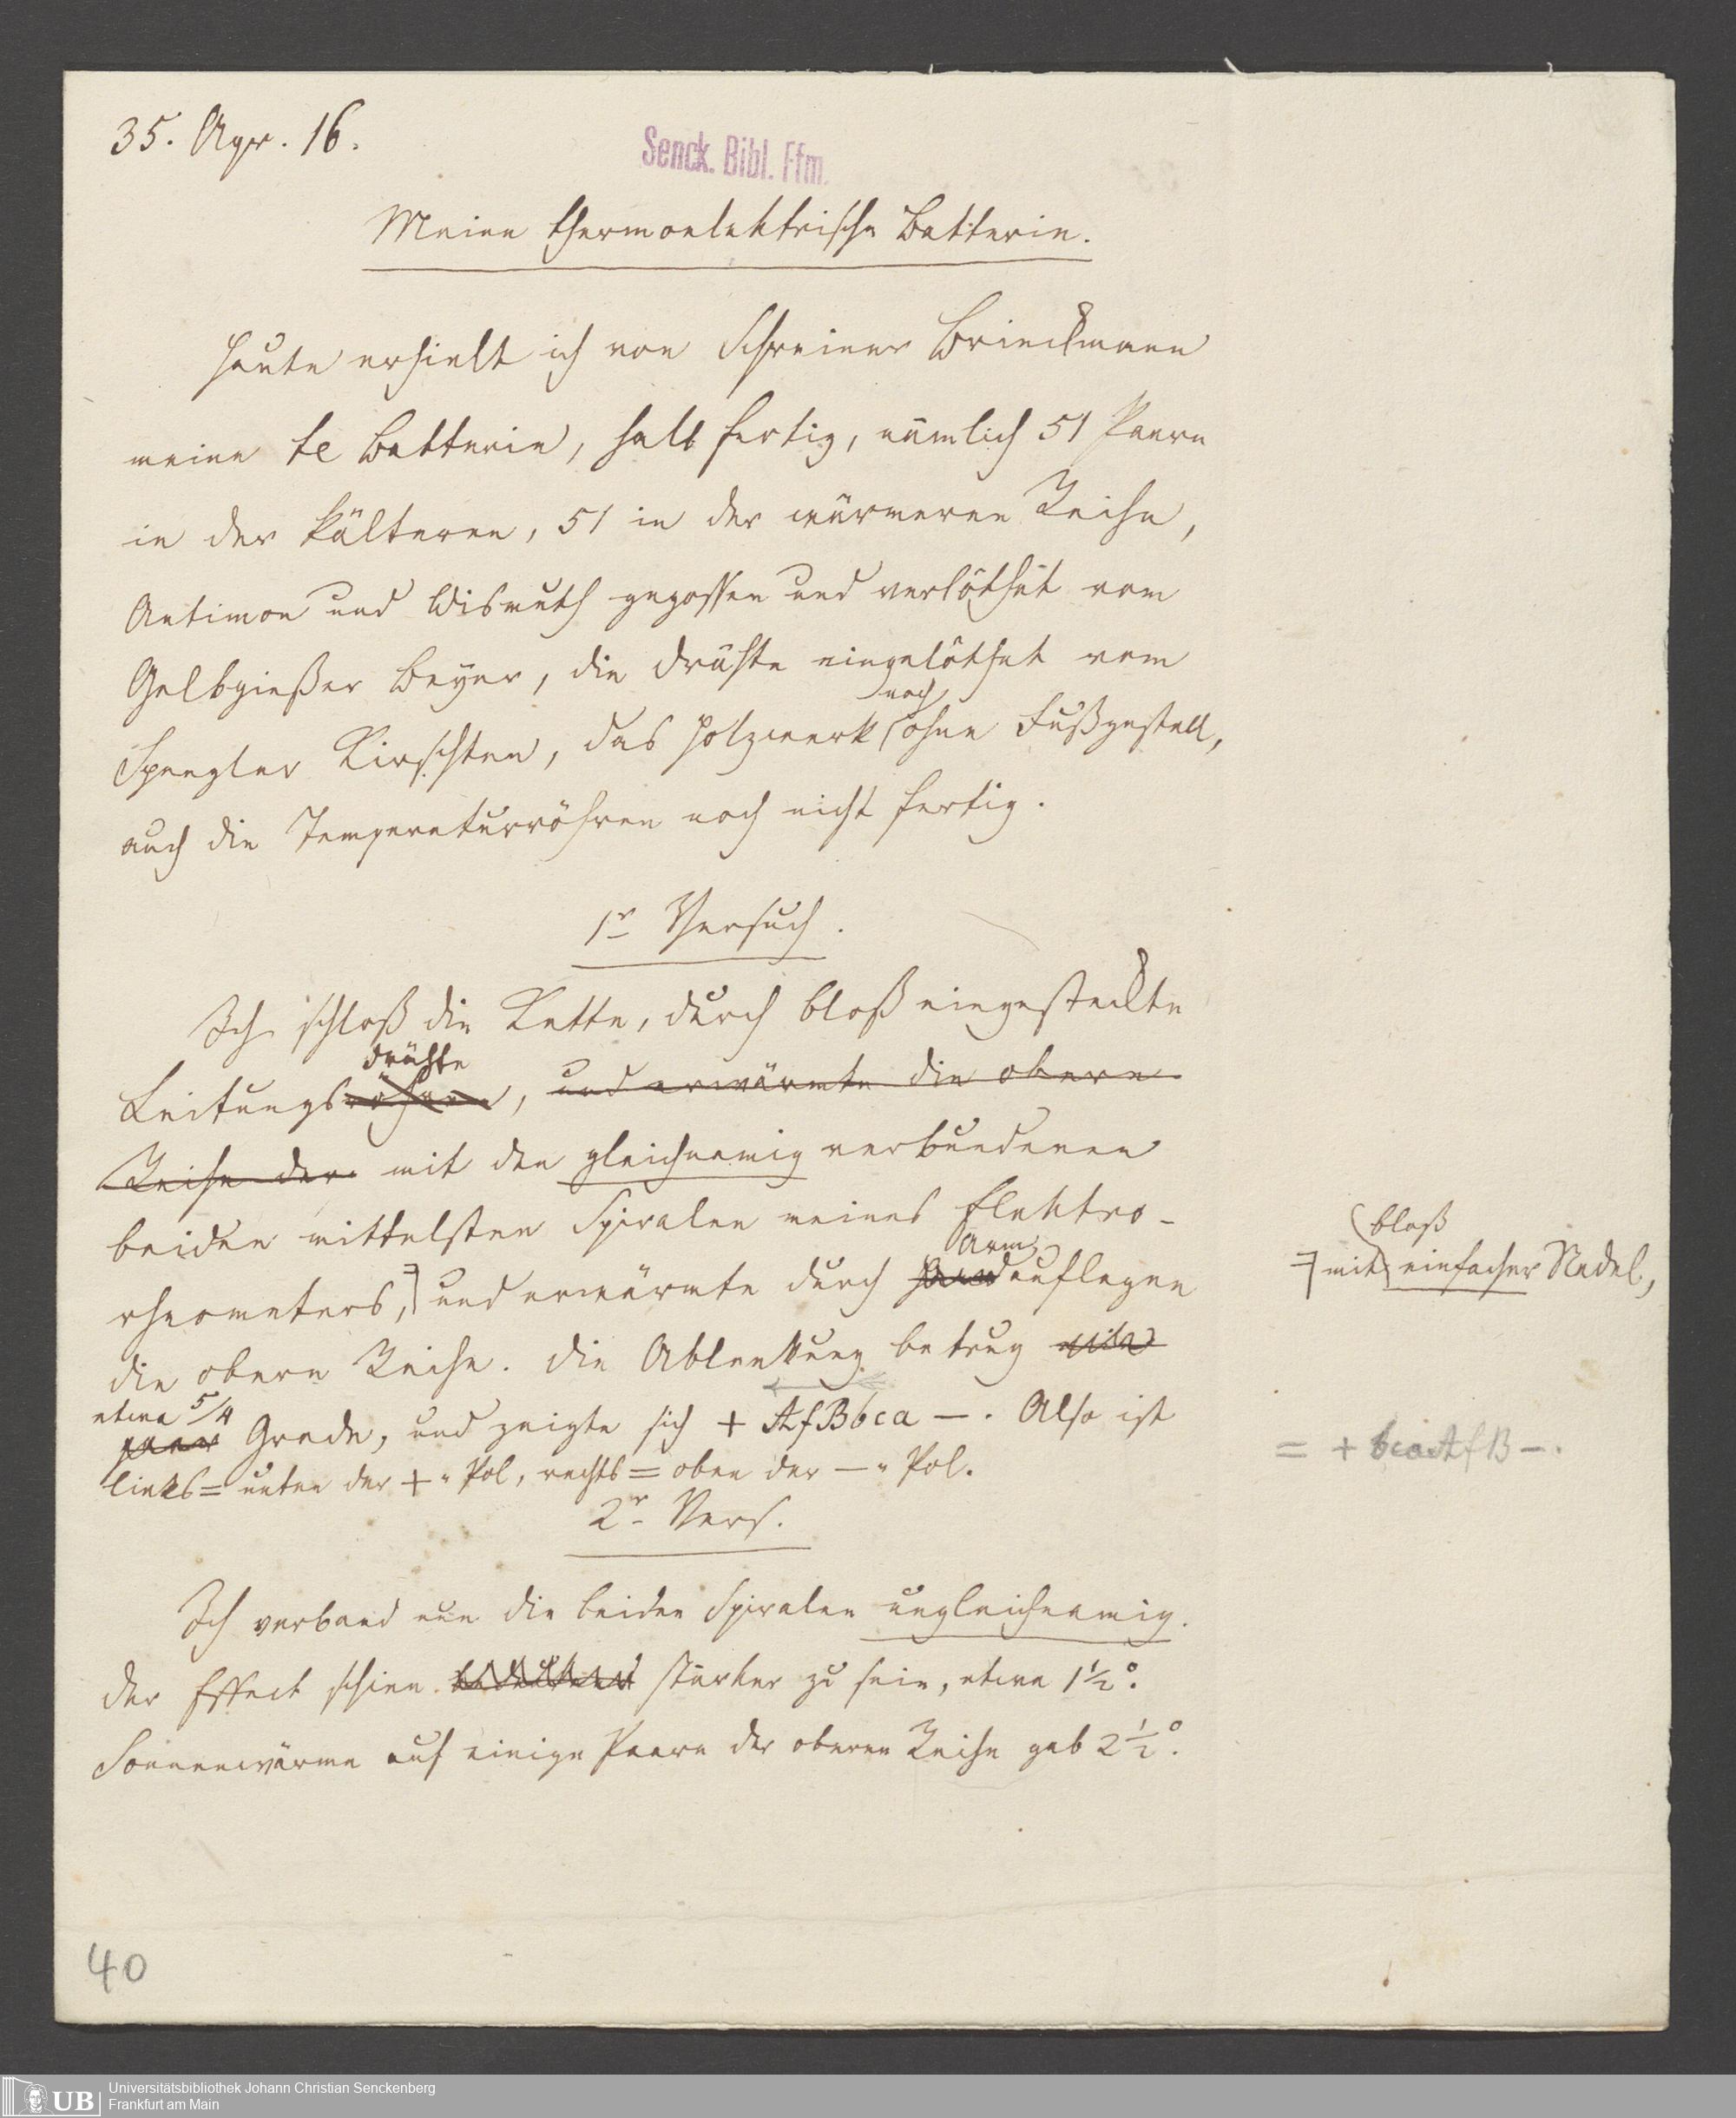 35. Apr. 16.
Senck. Bibl. Ffm.
Meine thermoelektrische Batterie.
Heute erhielt ich von Schreiner Brinckmann
meine te Batterie, halb fertig, nämlich 51 Paare
in der kälteren, 51 in der wärmeren Reihe,
Antimon und Wismuth gegossen und verlöthet vom
Gelbgießer Beyer, die Drähte eingelöthet vom
noch
Spengler Kirschten, das Holzwerk ohne Fußgestell,
auch die Temperaturröhren noch nicht fertig.
1r Versuch.
Ich schloß die Kette, durch bloß eingesteckte
drähte
Leitungsröhren, und erwärmte die obere
Reihe der mit den gleichnamig verbundenen
beiden mittelsten Spiralen meines Elektro-
bloß
Arm
rheometers, und erwärmte durch Handauflegen
mit einfacher Nadel,
die obere Reihe. Die Ablenkung betrug
etwa 5/4
paar Grade, und zeigte sich + AfBbca —. Also ist
= + bcaAfB —.
links = unten der + Pol, rechts = oben der — Pol.
2r Vers.
Ich verband nun die beiden Spiralen ungleichnamig.
Der Effect schien stärker zu sein, etwa 1 1/2°.
Sonnenwärme auf einige Paare der oberen Reihe gab 2 1/2°.
40
UB
Universitätsbibliothek Johann Christian Senckenberg
Frankfurt am Main